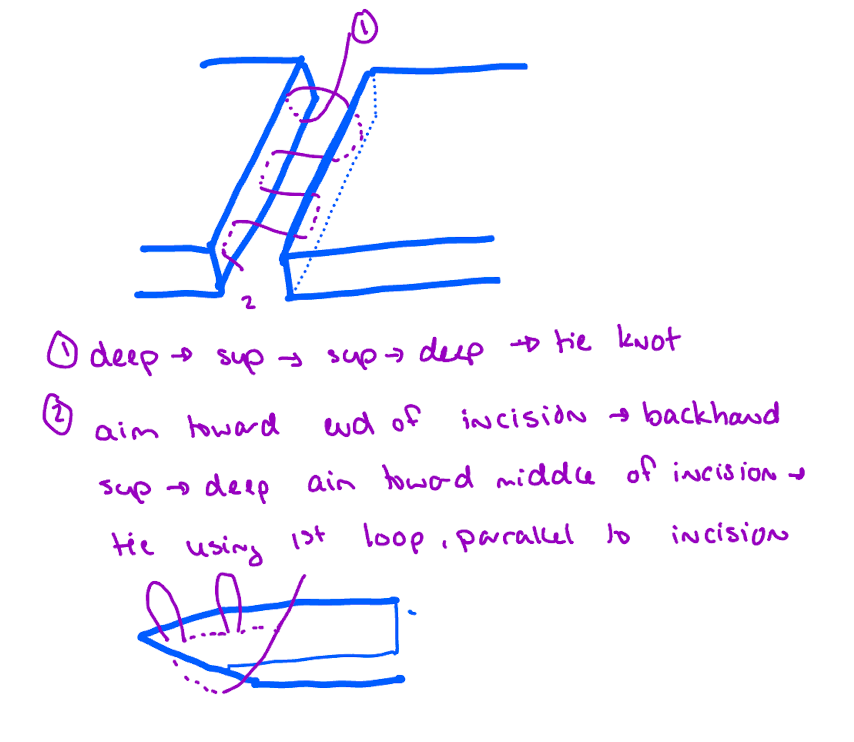 ①
2
① deep → sup → sup → deep → tie knot
② aim toward end of incision → backhand
sup → deep aim toward middle of incision →
tie using 1st loop, parallel to incision